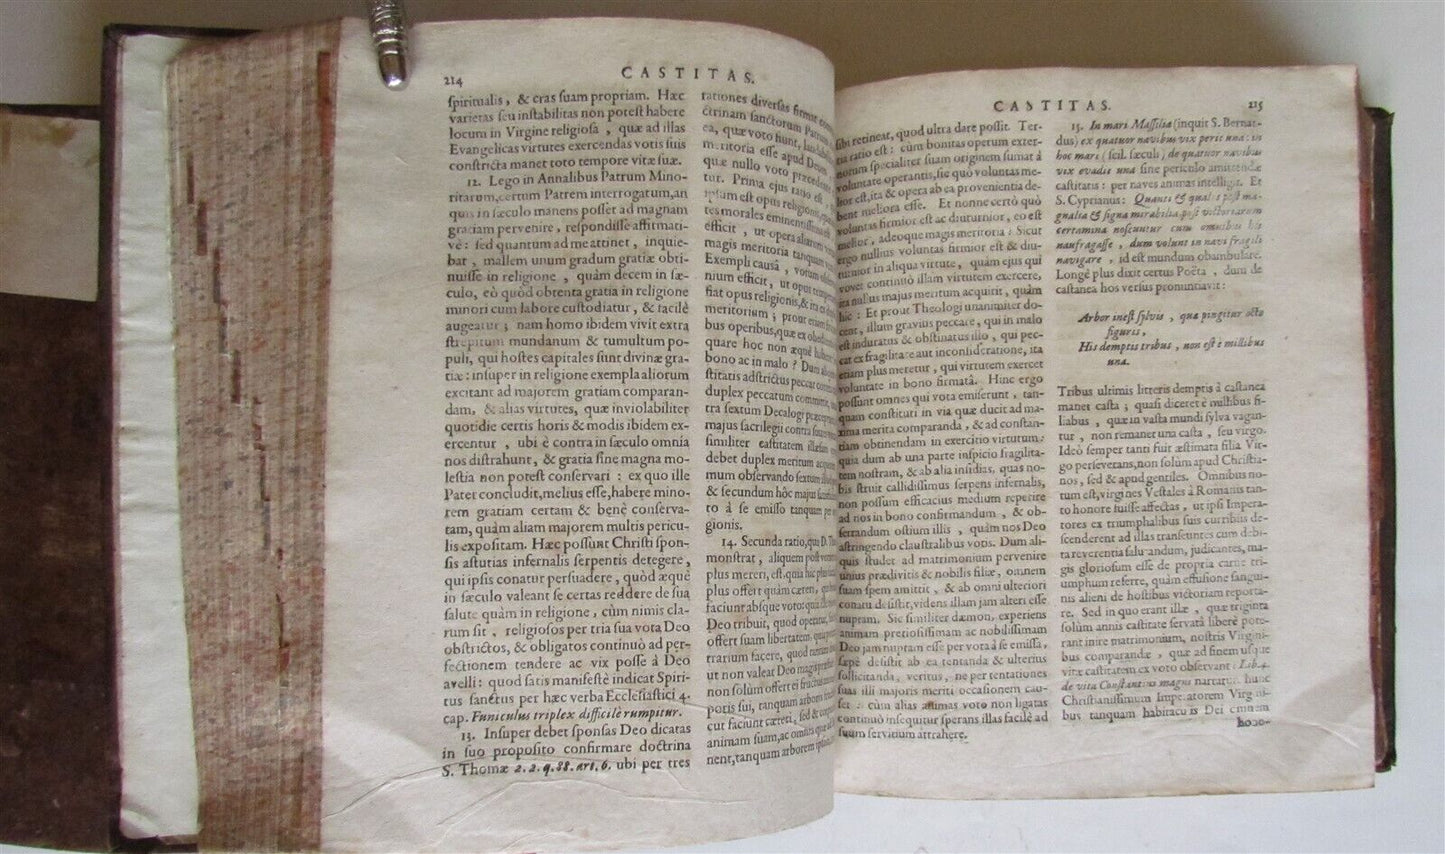 214
CASTITAS.
spiritualis, & cras suam propriam. Hæc
varietas seu instabilitas non potest habere
locum in Virgine religiosâ, quæ ad illas
Evangelicas virtutes exercendas votis suis
constricta manet toto tempore vitæ suæ.
12. Lego in Annalibus Patrum Mino-
ritarum, certum Patrem interrogatum, an
quis in sæculo manens posset ad magnam
gratiam pervenire, respondisse affirmati-
vè: sed quantum ad me attinet, inquie-
bat, mallem unum gradum gratiæ obti-
nuisse in religione, quàm decem in sæ-
culo, eò quòd obtenta gratia in religione
minori cum labore custodiatur, & facilè
augeatur; nam homo ibidem vivit extra
strepitum mundanum & tumultum po-
puli, qui hostes capitales sunt divinæ gra-
tiæ: insuper in religione exempla aliorum
excitant ad majorem gratiam comparan-
dam, & alias virtutes, quæ inviolabiliter
quotidie certis horis & modis ibidem ex-
ercentur, ubi è contra in sæculo omnia
nos distrahunt, & gratia sine magna mo-
lestia non potest conservari: ex quo ille
Pater concludit, melius esse, habere mino-
rem gratiam certam & benè conserva-
tam, quàm aliam majorem multis pericu-
lis expositam. Hæc possunt Christi spon-
sis astutias infernalis serpentis detegere,
qui ipsis conatur persuadere, quòd æquè
in sæculo valeant se certas reddere de sua
salute quàm in religione, cùm nimis cla-
rum sit, religiosos per tria sua vota Deo
obstrictos, & obligatos continuò ad per-
fectionem tendere ac vix posse à Deo
avelli: quod satis manifestè indicat Spiri-
tus sanctus per hæc verba Ecclesiastici 4.
cap. Funiculus triplex difficilè rumpitur.
13. Insuper debet sponsas Deo dicatas
in suo proposito confirmare doctrina
S. Thomæ 2.2.q.88.art.6. ubi per tres
rationes diversas firmat
ctrinam sanctorum Patrum
ea, quæ voto fiunt,
meritoria esse apud Deum
quæ nullo voto præcedente
tur. Prima ejus ratio est,
ipsum est opus religionis,
tes morales eminentissima
efficit, ut opera aliarum
magis meritoria tanquam
Exempli causâ, votum
nium efficit, ut opus
fiat opus religionis, & ita
meritorium; prout etiam
bus operibus, quæ ex
quare hoc non æquè
bono ac in malo? Dum
stitatis adstrictus peccat
duplex peccatum committit,
tra sextum Decalogi præceptum
majus sacrilegii contra
similiter castitatem illæsam
debet duplex meritum
mum observando sextum
& secundum hôc majus
to à se emisso tanquam
gionis.
14. Secunda ratio, qui D.
monstrat, aliquem post
plus mereri, est, quia hic plus
plus offert quàm cæteri,
faciunt absque voto: quia
Deo tribuit, quod operatur,
offert suam libertatem,
trarium facere, quod
ut non valeat Deo magis
non solùm offert ei fructus
potis sui, tanquam arboris
cut faciunt cæteri, sed &
animam suam, ac omnia quæ
nent, tanquam arborem
CASTITAS.
215
sibi retineat, quod ultra dare possit. Ter-
tia ratio est: cùm bonitas operum exter-
norum specialiter suam originem sumat à
voluntate operantis, sic quò voluntas me-
lior est, ita & opera ab ea provenientia de-
bent meliora esse. Et nonne certò quò
voluntas firmior est ac diuturnior, eo est
melior, adeoque magis meritoria: Sicut
ergo nullius voluntas firmior est & diu-
turnior in aliqua virtute, quàm ejus qui
vovet continuò illam virtutem exercere,
ita nullus majus meritum acquirit, quàm
hic: Et prout Theologi unanimiter do-
cent, illum gravius peccare, qui in malo
est induratus & obstinatus illo, qui pec-
cat ex fragilitate aut inconsideratione, ita
etiam plus meretur, qui virtutem exercet
voluntate in bono firmatâ. Hinc ergo
possunt omnes qui vota emiserunt, tan-
quam constituti in via quæ ducit ad ma-
xima merita comparanda, & ad constan-
tiam obtinendam in exercitio virtutum:
quia dum ab una parte inspicio fragilita-
tem nostram, & ab alia insidias, quas no-
bis struit callidissimus serpens infernalis,
non possum efficacius medium reperire
ad nos in bono confirmandum, & ob-
serrandum ostium illis, quàm nos Deo
astringendo claustralibus votis. Dum ali-
quis studet ad matrimonium pervenire
unius prædivitis & nobilis filiæ, omnem
suam spem amittit, & ab omni ulteriori
conatu desistit, videns illam jam alteri esse
nuptam. Sic similiter dæmon, experiens
animam pretiosissimam ac nobilissimam
Deo jam nuptam esse per vota à se emissa,
sæpè desistit ab ea tentanda & ulterius
sollicitanda, veritus, ne per tentationes
suas illi majoris meriti occasionem cau-
set: cùm alias animas voto non ligatas
continuò insequitur sperans illas facilè ad
suum servitium attrahere.
15. In mari Massilia (inquit S. Bernar-
dus) ex quatuor navibus vix perit una: in
hoc mari (scil. sæculi) de quatuor navibus
vix evadit una sine periculo amittendæ
castitatis: per naves animas intelligit. Et
S. Cyprianus: Quanti & quales post ma-
gnalia & signa mirabilia post victoriarum
certamina noscuntur cum omnibus his
naufragasse, dum volunt in navi fragili
navigare, id est mundum obambulare.
Longè plus dixit certus Poëta, dum de
castanea hos versus pronuntiavit:
Arbor inest sylvis, qua pingitur octo
figuris,
His demptis tribus, non est è millibus
una.
Tribus ultimis litteris demptis à castanea
manet casta; quasi diceret è millibus fi-
liabus, quæ in vasta mundi sylva vagan-
tur, non remanet una casta, seu virgo.
Ideò semper tanti fuit æstimata filia Vir-
go perseverans, non solùm apud Christia-
nos, sed & apud gentiles. Omnibus no-
tum est, virgines Vestales à Romanis tan-
to honore fuisse affectas, ut ipsi Impera-
tores ex triumphalibus suis curribus de-
scenderent ad illas transeuntes cum debi-
ta reverentia salutandum, judicantes, ma-
gis gloriosum esse de propria carne tri-
umphum referre, quàm effusione sangui-
nis alieni de hostibus victoriam reporta-
re. Sed in quo erant illæ, quæ triginta
solùm annis castitate servatâ liberè pote-
rant inire matrimonium, nostris Virgini-
bus comparandæ, quæ ad finem usque
vitæ castitatem ex voto observant: Lib. 4.
de vita Constantini magni narratur, hunc
Christianissimum Imperatorem Virgini-
bus tanquam habitaculis Dei omnem
hono-